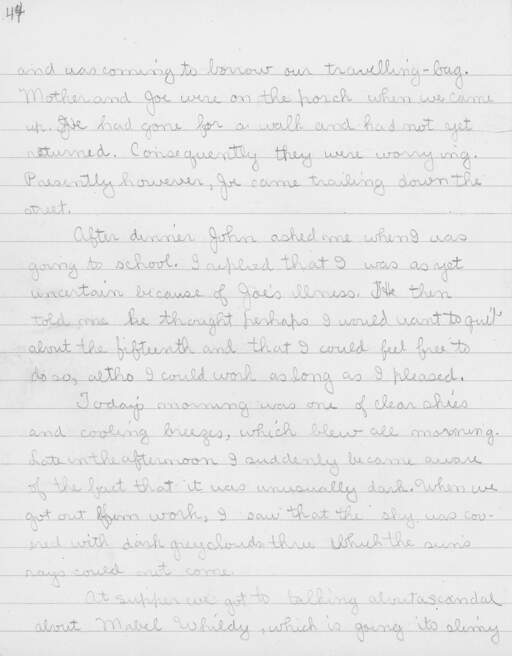 44
and was coming to borrow our travelling-bag.
Mother and Joe were on the porch when we came
up. Ire had gone for a walk and had not yet
returned. Consequently they were worrying.
Presently however, Ire came trailing down the
street.
After dinner John asked me when I was
going to school. I replied that I was as yet
uncertain because of Joe's illness. He then
told me he thought perhaps I would want to quit
about the fifteenth and that I could feel free to
do so, altho I could work as long as I pleased.
Today's morning was one of clear skies
and cooling breezes, which blew all morning.
Late in the afternoon I suddenly became aware
of the fact that it was unusually dark. When we
got out from work, I saw that the sky was cov-
ered with dark grey clouds thru which the sun's
rays could not come.
At supper we got to talking about a scandal
about Mabel Whildy, which is going its slimy